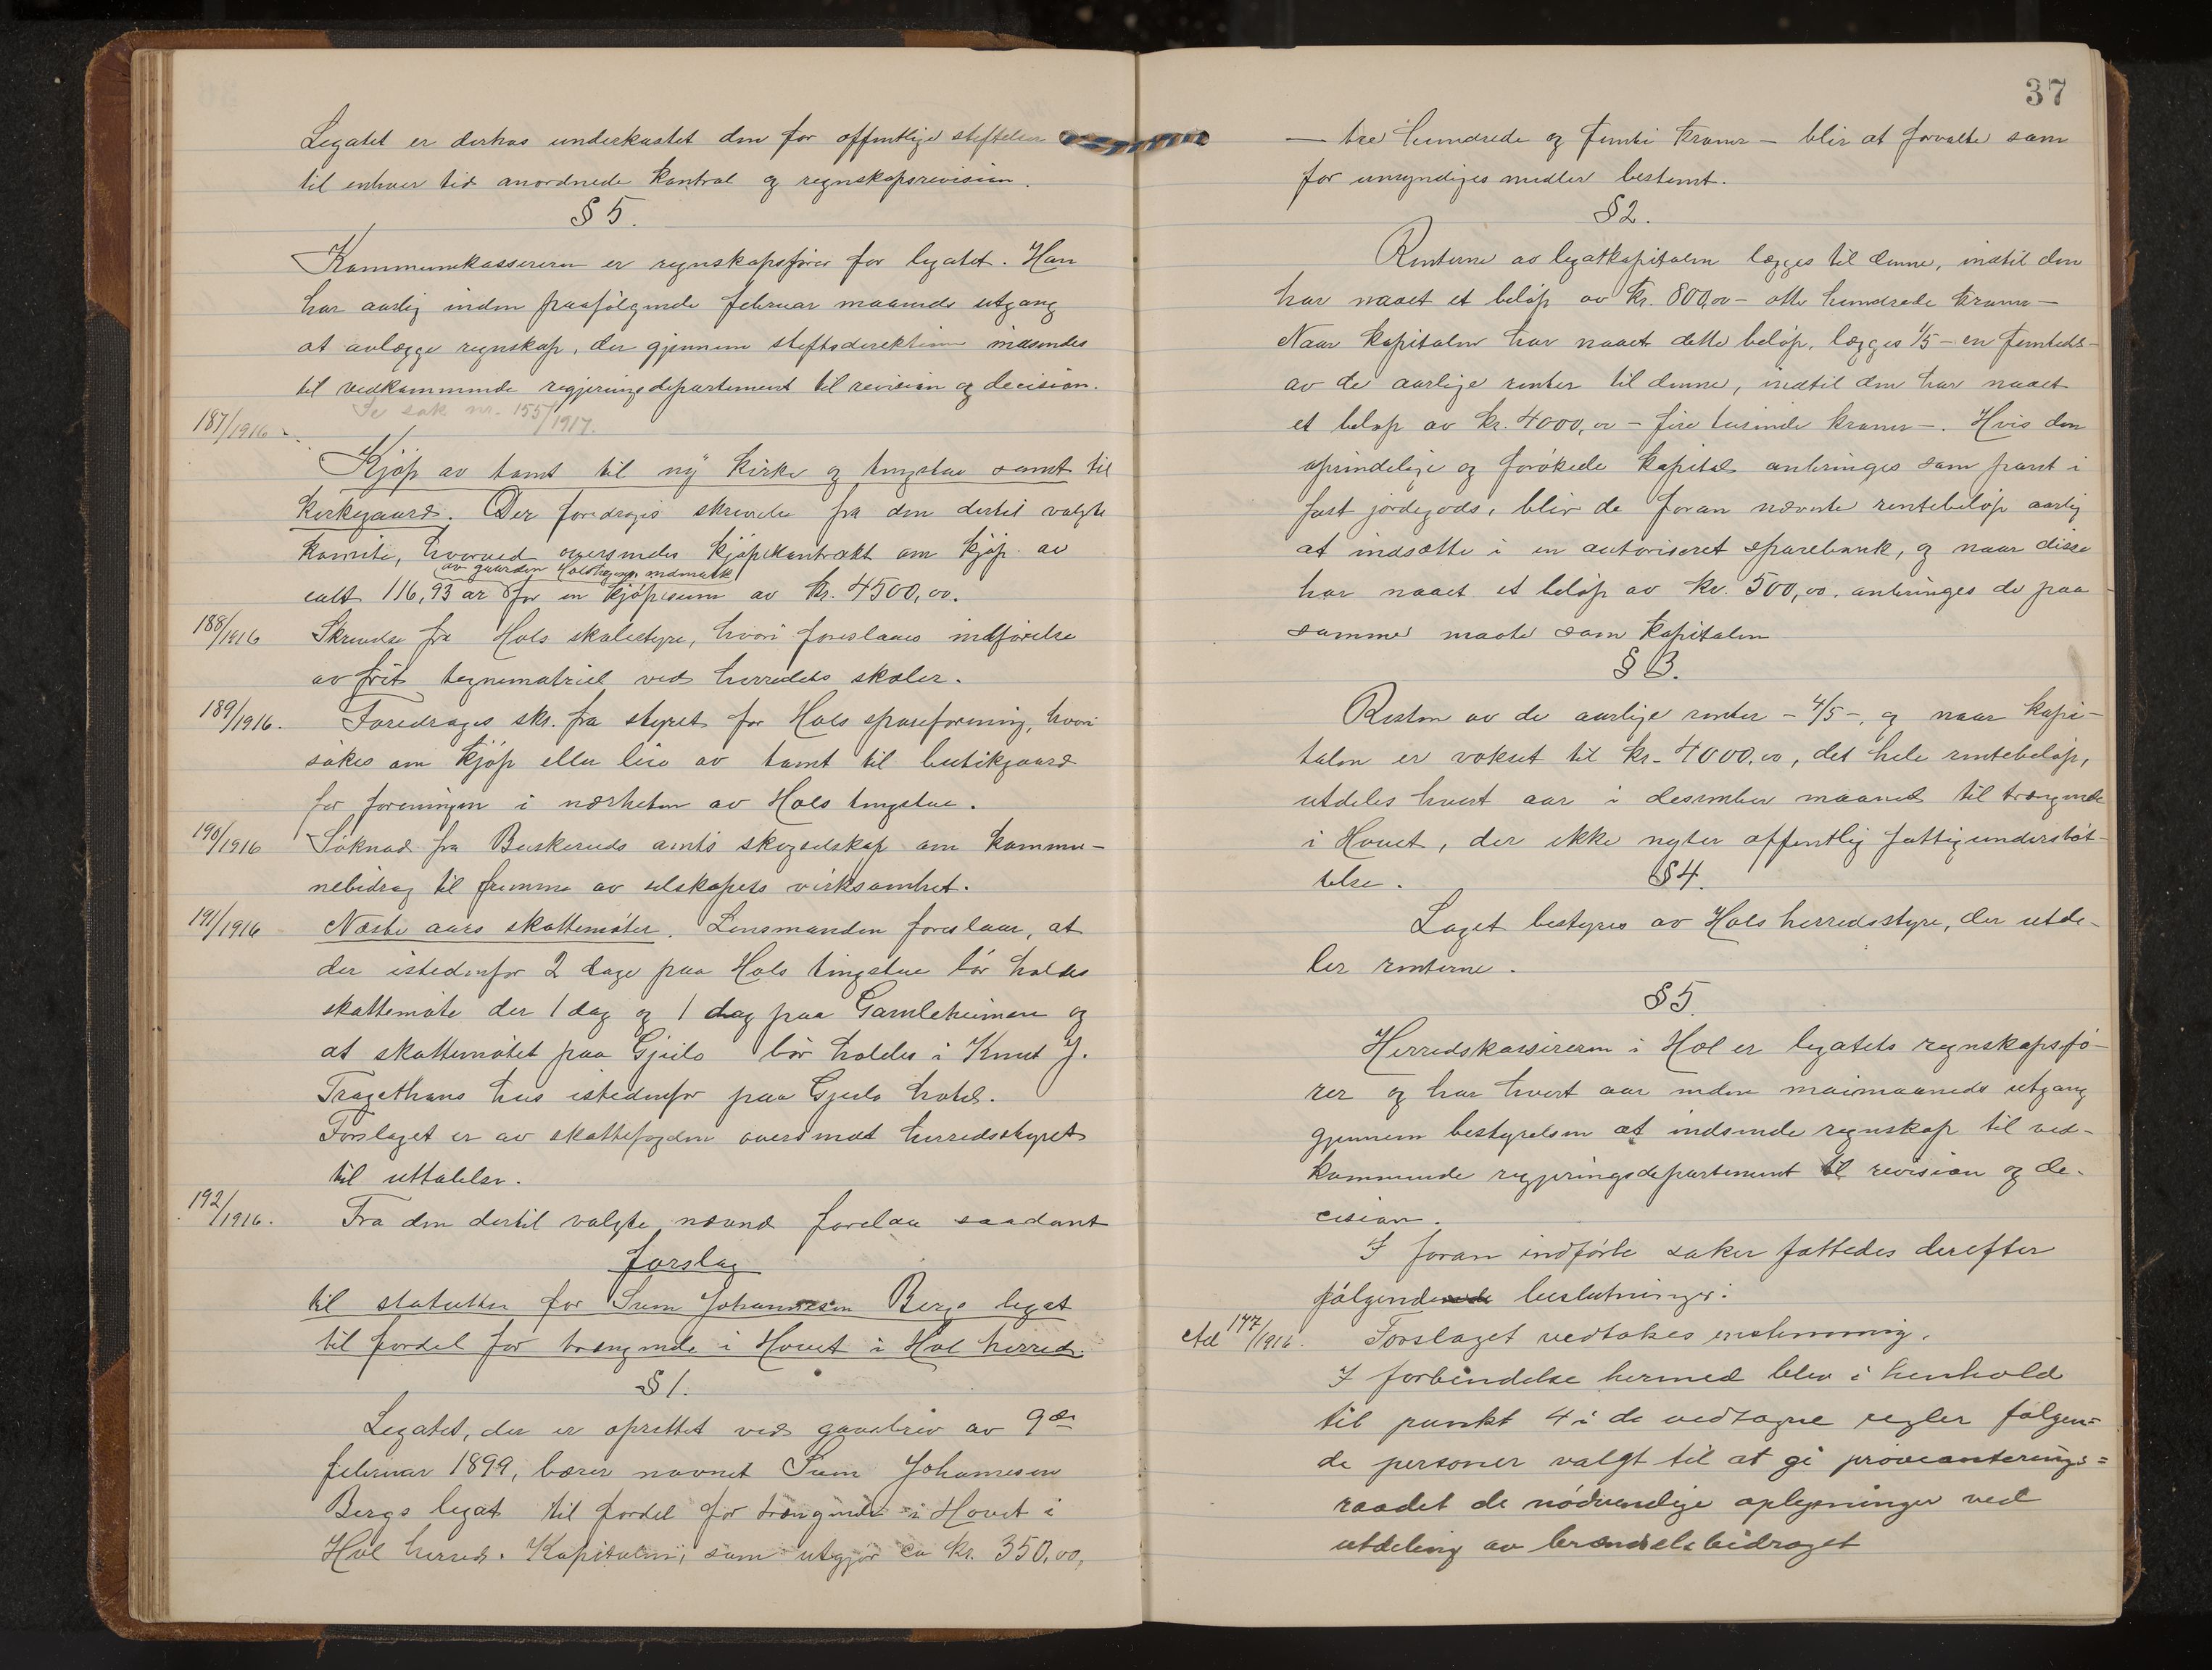 Legatet er derhos underkastet den for offentlige stiftelser
til enhver tid anordnede kontrol og regnskapsrevision.
§ 5.
Kommunekassereren er regnskapsfører for legatet. Han
har aarlig inden paafølgende februar maaneds utgang
at avlægge regnskap, der gjennem stiftsdirektionen indsendes
til vedkommende regjeringsdepartement til revision og decision.
Se sak nr. 155/1917.
187/1916
Kjøp av tomt til ny kirke og tingstue samt til
kirkegaard. Der foredrages skrivelse fra den dertil valgte
komite, hvorved oversendes kjøpekontrakt om kjøp av
av gaarden
ialt 116,93 ar for en kjøpesum av kr. 4500,00.
188/1916 Skrivelse fra Hols skolestyre, hvori foreslaaes indførelse
av frit tegnematriel ved herredets skoler.
189/1916. Foredrages skr. fra styret for Hols spareforening, hvori
søkes om kjøp eller leie av tomt til butikgaard
for foreningen i nærheten av Hols tingstue.
190/1916 Søknad fra Buskeruds amts skogselskap om kommu-
nebidrag til fremme av selskapets virksomhet.
191/1916 Næste aars skattemøter. Lensmanden foreslaar, at
der istedenfor 2 dage paa Hols tingstue bør holdes
skattemøte der 1 dag og 1 dag paa Gamleheimen og
at skattemøtet paa Gjeilo bør holdes i Knut J.
Tragethons hus istedenfor paa Gjeilo hotel.
Forslaget er av skattefogden oversendt herredsstyret
til uttalelse.
192/1916. Fra den dertil valgte nævnd forelaa saadant
forslag
til statutter for Svein Johannesen Bergs legat
til fordel for trængende i Hovet i Hol herred.
§ 1.
Legatet, der er oprettet ved gavebrev av 9de
februar 1899, bærer navnet Svein Johannesen
Bergs legat til fordel for trængende i Hovet i
Hol herred. Kapitalen, som utgjør ca kr. 350,00,
37
— tre hundrede og femti kroner — blir at forvalte som
for umyndiges midler bestemt.
§ 2.
Renterne av legatkapitalen lægges til denne, indtil den
har naaet et beløp av kr. 800,00 – otte hundrede kroner —
Naar kapitalen har naaet dette beløp, lægges 1/5 – en femtedel –
av de aarlige renter til denne, indtil den har naaet
et beløp av kr. 4000,00 – fire tusinde kroner –. Hvis den
oprindelige og forøkede kapital anbringes som pant i
fast jordegods, blir de foran nævnte rentebeløp aarlig
at indsætte i en autoriseret sparebank, og naar disse
har naaet et beløp av kr. 500,00. anbringes de paa
samme maate som kapitalen
§ 3.
Resten av de aarlige renter – 4/5 –, og naar kapi-
talen er vokset til kr. 4000,00, det hele rentebeløp,
utdeles hvert aar i desember maaned til trængende
i Hovet, der ikke nyter offentlig fattigunderstøt-
telse.
§ 4.
Laget bestyres av Hols herredsstyre, der utde-
ler renterne.
§ 5.
Herredskassereren i Hol er legatets regnskapsfø-
rer og har hvert aar inden maimaaneds utgang
gjennem bestyrelsen at indsende regnskap til ved-
kommende regjeringsdepartement til revision og de-
cision.
I foran indførte saker fattedes derefter
følgende beslutninger:
Ad 177/1916. Forslaget vedtokes enstemmig.
I forbindelse hermed blev i henhold
til punkt 4 i de vedtagne regler følgen=
de personer valgt til at gi provianterings=
raadet de nødvendige oplysninger ved
utdeling av brændselsbidraget